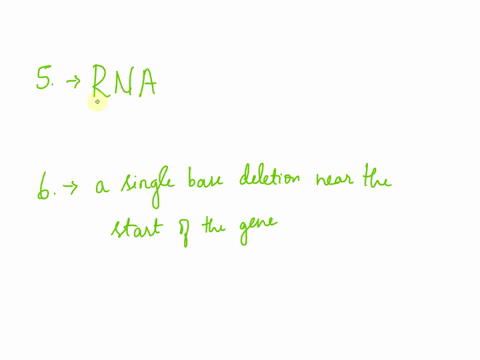 5. → RNA
6. → a single base deletion near the
start of the gene